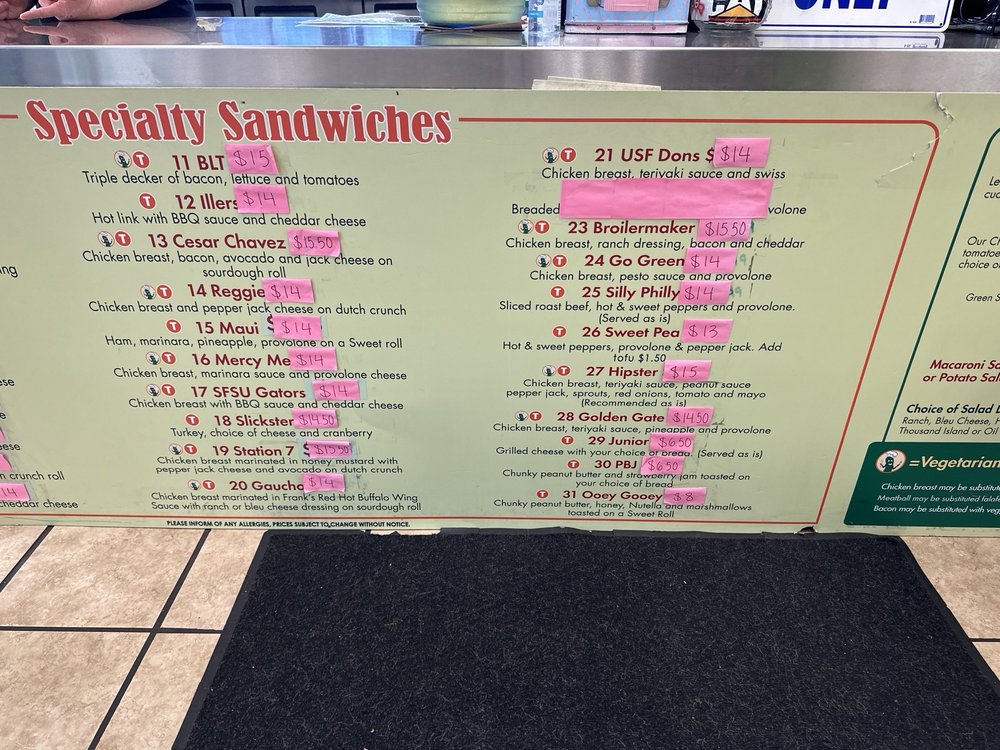 ONLY
Specialty Sandwiches
T 11 BLT $15
Triple decker of bacon, lettuce and tomatoes
T 12 Illers $14
Hot link with BBQ sauce and cheddar cheese
T 13 Cesar Chavez $15.50
Chicken breast, bacon, avocado and jack cheese on
sourdough roll
T 14 Reggie $14
Chicken breast and pepper jack cheese on dutch crunch
T 15 Maui $ $14
Ham, marinara, pineapple, provolone on a Sweet roll
T 16 Mercy Me $14
Chicken breast, marinara sauce and provolone cheese
T 17 SFSU Gators $14
Chicken breast with BBQ sauce and cheddar cheese
T 18 Slickster $14.50
Turkey, choice of cheese and cranberry
T 19 Station 7 $ $15.50
Chicken breast marinated in honey mustard with
pepper jack cheese and avocado on dutch crunch
T 20 Gaucho $14
Chicken breast marinated in Frank's Red Hot Buffalo Wing
Sauce with ranch or bleu cheese dressing on sourdough roll
T 21 USF Dons $ $14
Chicken breast, teriyaki sauce and swiss
Breaded volone
T 23 Broilermaker $15.50
Chicken breast, ranch dressing, bacon and cheddar
T 24 Go Green $14
Chicken breast, pesto sauce and provolone
T 25 Silly Philly $14
Sliced roast beef, hot & sweet peppers and provolone.
(Served as is)
T 26 Sweet Pea $13
Hot & sweet peppers, provolone & pepper jack. Add
tofu $1.50
T 27 Hipster $15
Chicken breast, teriyaki sauce, peanut sauce
pepper jack, sprouts, red onions, tomato and mayo
(Recommended as is)
T 28 Golden Gate $14.50
Chicken breast, teriyaki sauce, pineapple and provolone
T 29 Junior $6.50
Grilled cheese with your choice of bread. (Served as is)
T 30 PBJ $6.50
Chunky peanut butter and strawberry jam toasted on
your choice of bread
T 31 Ooey Gooey $8
Chunky peanut butter, honey, Nutella and marshmallows
toasted on a Sweet Roll
PLEASE INFORM OF ANY ALLERGIES, PRICES SUBJECT TO CHANGE WITHOUT NOTICE.
n crunch roll
14
cheddar cheese
Our Ch
tomatoe
choice o
Green S
Macaroni Sa
or Potato Sal
Choice of Salad
Ranch, Bleu Cheese, H
Thousand Island or Oil
=Vegetarian
Chicken breast may be substitut
Meatball may be substituted falafe
Bacon may be substituted with veg